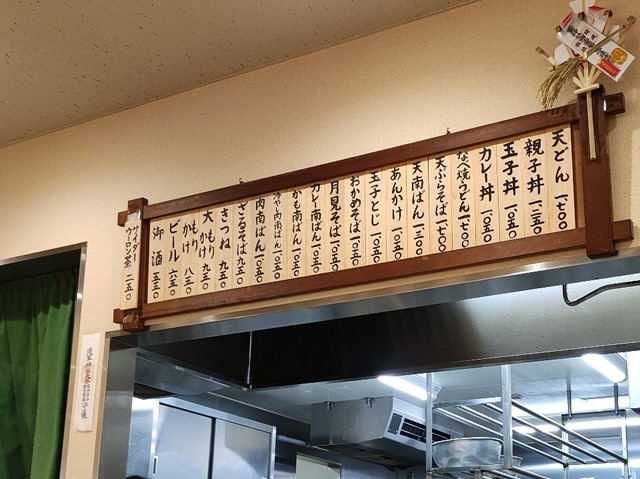 天どん 一七〇〇
親子丼 一二五〇
玉子丼 一〇五〇
カレー丼 一〇五〇
なべ焼うどん 一七〇〇
天ぷらそば 一七〇〇
天南ばん 一三五〇
あんかけ 一〇五〇
玉子とじ 一〇五〇
おかめそば 一〇五〇
月見そば 一〇五〇
カレー南ばん 一〇五〇
かも南ばん 一〇五〇
冷やし肉南ばん 一〇五〇
肉南ばん 一〇五〇
ざるそば 九五〇
きつね 九五〇
大もり かけ 九五〇
もり かけ 八五〇
ビール 六五〇
御酒 五五〇
サイダー ウーロン茶 二五〇